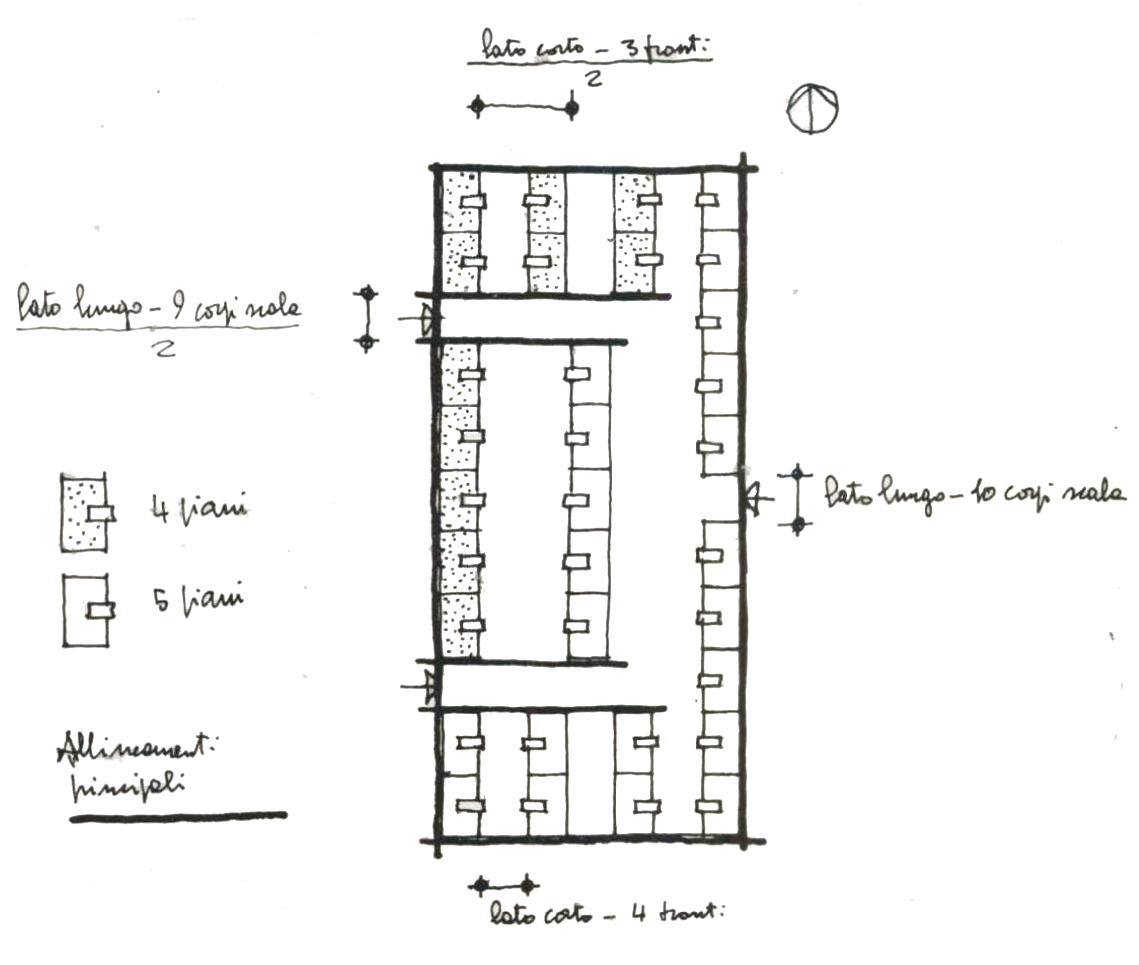 lato corto - 3 fronti
2
lato lungo - 9 corpi scala
2
lato lungo - 10 corpi scala
4 piani
5 piani
Allineamenti
principali
lato corto - 4 fronti